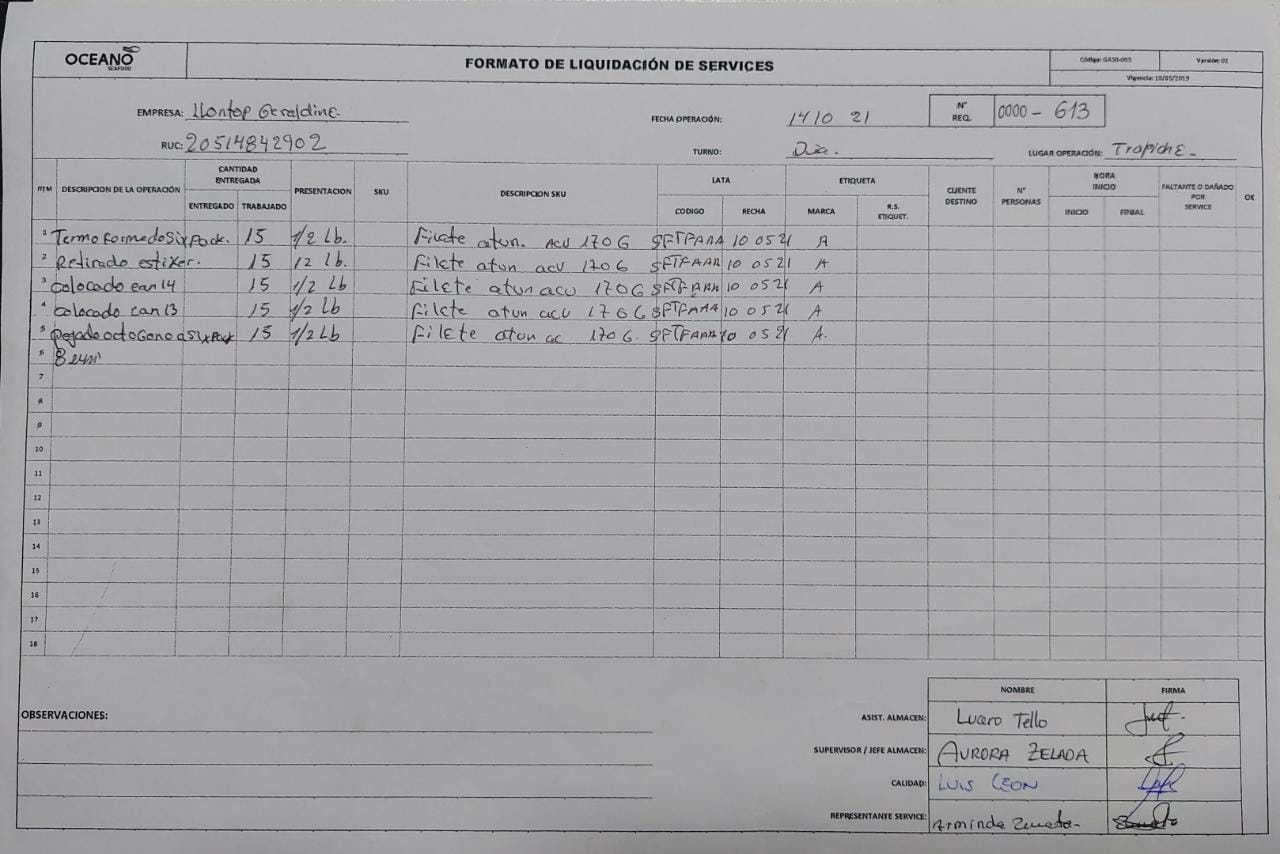 OCEANO
SEAFOOD
FORMATO DE LIQUIDACIÓN DE SERVICES
Código: GA50-005 Versión: 02
Vigencia: 10/05/2019
EMPRESA: Llontop Geraldine
FECHA OPERACIÓN: 14 10 21
N° REQ. 0000 - 613
RUC: 20514842902
TURNO: Dia.
LUGAR OPERACIÓN: Trapiche
ITM DESCRIPCION DE LA OPERACIÓN CANTIDAD ENTREGADA PRESENTACION SKU DESCRIPCION SKU LATA ETIQUETA CLIENTE DESTINO N° PERSONAS HORA INICIO FALTANTE O DAÑADO POR SERVICE OK
ENTREGADO TRABAJADO CODIGO FECHA MARCA R.S. ETIQUET. INICIO FINIAL
1 Termoformedo Six Pack. 15 1/2 Lb. Filete atun. ACU 170 G SFTFAAA 10 05 21 A
2 Retirado estixer. 15 12 Lb. Filete atun acu 170 G SFTFAAA 10 05 21 A
3 Colocado ean 14 15 1/2 Lb Filete atun acu 170 G SFTFAAA 10 05 21 A
4 Colocado ean 13 15 1/2 Lb Filete atun acu 170 G SFTFAAA 10 05 21 A
5 pegado octoGono a Six Pack 15 1/2 Lb Filete atun ac 170 G. SFTFAAA 10 05 21 A.
6
7
8
9
10
11
12
13
14
15
16
17
18
NOMBRE FIRMA
OBSERVACIONES:
ASIST. ALMACEN: Lucero Tello
SUPERVISOR / JEFE ALMACEN: AURORA ZELADA
CALIDAD: LUIS LEON
REPRESENTANTE SERVICE: Arminda